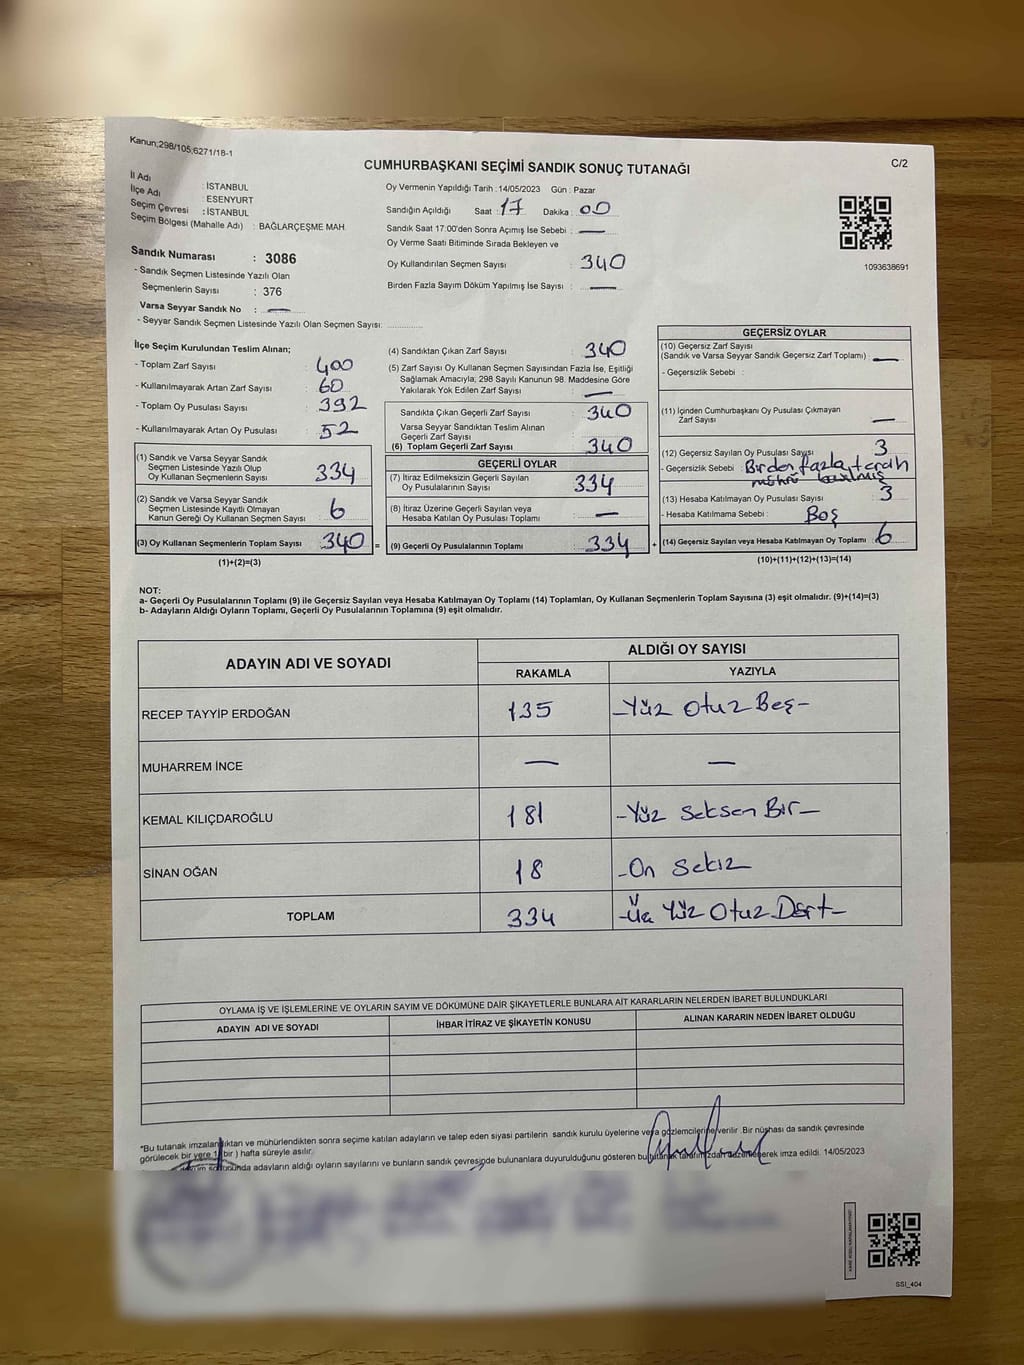 Kanun;298/105;6271/18-1
C/2
CUMHURBAŞKANI SEÇİMİ SANDIK SONUÇ TUTANAĞI
İl Adı : İSTANBUL
İlçe Adı : ESENYURT
Seçim Çevresi : İSTANBUL
Seçim Bölgesi (Mahalle Adı) : BAĞLARÇEŞME MAH.
Sandık Numarası : 3086
- Sandık Seçmen Listesinde Yazılı Olan
Seçmenlerin Sayısı : 376
Varsa Seyyar Sandık No : —
- Seyyar Sandık Seçmen Listesinde Yazılı Olan Seçmen Sayısı: ..............
Oy Vermenin Yapıldığı Tarih : 14/05/2023 Gün : Pazar
Sandığın Açıldığı Saat : 17 Dakika : 00
Sandık Saat 17:00'den Sonra Açımış İse Sebebi : —
Oy Verme Saati Bitiminde Sırada Bekleyen ve
Oy Kullandırılan Seçmen Sayısı : 340
Birden Fazla Sayım Döküm Yapılmış İse Sayısı : —
1093638691
İlçe Seçim Kurulundan Teslim Alınan;
- Toplam Zarf Sayısı : 400
- Kullanılmayarak Artan Zarf Sayısı : 60
- Toplam Oy Pusulası Sayısı : 392
- Kullanılmayarak Artan Oy Pusulası : 52
(1) Sandık ve Varsa Seyyar Sandık
Seçmen Listesinde Yazılı Olup
Oy Kullanan Seçmenlerin Sayısı : 334
(2) Sandık ve Varsa Seyyar Sandık
Seçmen Listesinde Kayıtlı Olmayan
Kanun Gereği Oy Kullanan Seçmen Sayısı : 6
(3) Oy Kullanan Seçmenlerin Toplam Sayısı : 340 =
(1)+(2)=(3)
(4) Sandıktan Çıkan Zarf Sayısı : 340
(5) Zarf Sayısı Oy Kullanan Seçmen Sayısından Fazla İse, Eşitliği
Sağlamak Amacıyla; 298 Sayılı Kanunun 98. Maddesine Göre
Yakılarak Yok Edilen Zarf Sayısı : —
Sandıkta Çıkan Geçerli Zarf Sayısı : 340
Varsa Seyyar Sandıktan Teslim Alınan
Geçerli Zarf Sayısı :
(6) Toplam Geçerli Zarf Sayısı : 340
GEÇERLİ OYLAR
(7) İtiraz Edilmeksizin Geçerli Sayılan
Oy Pusulalarının Sayısı : 334
(8) İtiraz Üzerine Geçerli Sayılan veya
Hesaba Katılan Oy Pusulası Toplamı : —
(9) Geçerli Oy Pusulalarının Toplamı : 334 +
GEÇERSİZ OYLAR
(10) Geçersiz Zarf Sayısı
(Sandık ve Varsa Seyyar Sandık Geçersiz Zarf Toplamı) : —
- Geçersizlik Sebebi :
(11) İçinden Cumhurbaşkanı Oy Pusulası Çıkmayan
Zarf Sayısı : —
(12) Geçersiz Sayılan Oy Pusulası Sayısı : 3
- Geçersizlik Sebebi : Birden fazla tercih
mührü basılmış
(13) Hesaba Katılmayan Oy Pusulası Sayısı : 3
- Hesaba Katılmama Sebebi : Boş
(14) Geçersiz Sayılan veya Hesaba Katılmayan Oy Toplamı : 6
(10)+(11)+(12)+(13)=(14)
NOT:
a- Geçerli Oy Pusulalarının Toplamı (9) ile Geçersiz Sayılan veya Hesaba Katılmayan Oy Toplamı (14) Toplamları, Oy Kullanan Seçmenlerin Toplam Sayısına (3) eşit olmalıdır. (9)+(14)=(3)
b- Adayların Aldığı Oyların Toplamı, Geçerli Oy Pusulalarının Toplamına (9) eşit olmalıdır.
ADAYIN ADI VE SOYADI
ALDIĞI OY SAYISI
RAKAMLA YAZIYLA
RECEP TAYYİP ERDOĞAN 135 -Yüz Otuz Beş-
MUHARREM İNCE — —
KEMAL KILIÇDAROĞLU 181 -Yüz Seksen Bir-
SİNAN OĞAN 18 -On Sekiz
TOPLAM 334 -Üç Yüz Otuz Dört-
OYLAMA İŞ VE İŞLEMLERİNE VE OYLARIN SAYIM VE DÖKÜMÜNE DAİR ŞİKAYETLERLE BUNLARA AİT KARARLARIN NELERDEN İBARET BULUNDUKLARI
ADAYIN ADI VE SOYADI İHBAR İTİRAZ VE ŞİKAYETİN KONUSU ALINAN KARARIN NEDEN İBARET OLDUĞU
"Bu tutanak imzalandıktan ve mühürlendikten sonra seçime katılan adayların ve talep eden siyasi partilerin sandık kurulu üyelerine veya gözlemcilerine verilir .Bir nüshası da sandık çevresinde
görülecek bir yere 1( bir ) hafta süreyle asılır.
sonucunda adayların aldığı oyların sayılarını ve bunların sandık çevresinde bulunanlara duyurulduğunu gösteren bu tutanak tarafımızdan düzenlenerek imza edildi. 14/05/2023
SSI_404